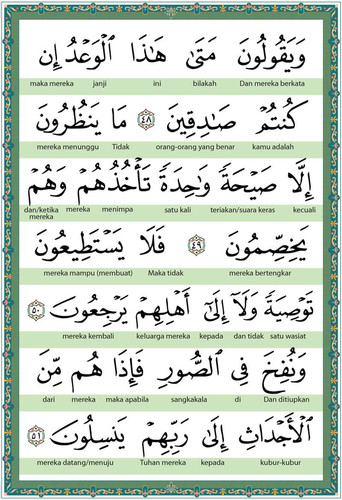 وَيَقُولُونَ مَتَىٰ هَٰذَا ٱلْوَعْدُ إِن
maka mereka janji ini bilakah Dan mereka berkata
كُنتُمْ صَٰدِقِينَ ٤٨ مَا يَنظُرُونَ
mereka menunggu Tidak orang-orang yang benar kamu adalah
إِلَّا صَيْحَةً وَٰحِدَةً تَأْخُذُهُمْ وَهُمْ
dan/ketika mereka mereka menimpa satu kali teriakan/suara keras kecuali
يَخِصِّمُونَ ٤٩ فَلَا يَسْتَطِيعُونَ
mereka mampu (membuat) Maka tidak mereka bertengkar
تَوْصِيَةً وَلَآ إِلَىٰٓ أَهْلِهِمْ يَرْجِعُونَ ٥٠
mereka kembali keluarga mereka kepada dan tidak satu wasiat
وَنُفِخَ فِى ٱلصُّورِ فَإِذَا هُم مِّنَ
dari mereka maka apabila sangkakala di Dan ditiupkan
ٱلْأَجْدَاثِ إِلَىٰ رَبِّهِمْ يَنسِلُونَ ٥١
mereka datang/menuju Tuhan mereka kepada kubur-kubur